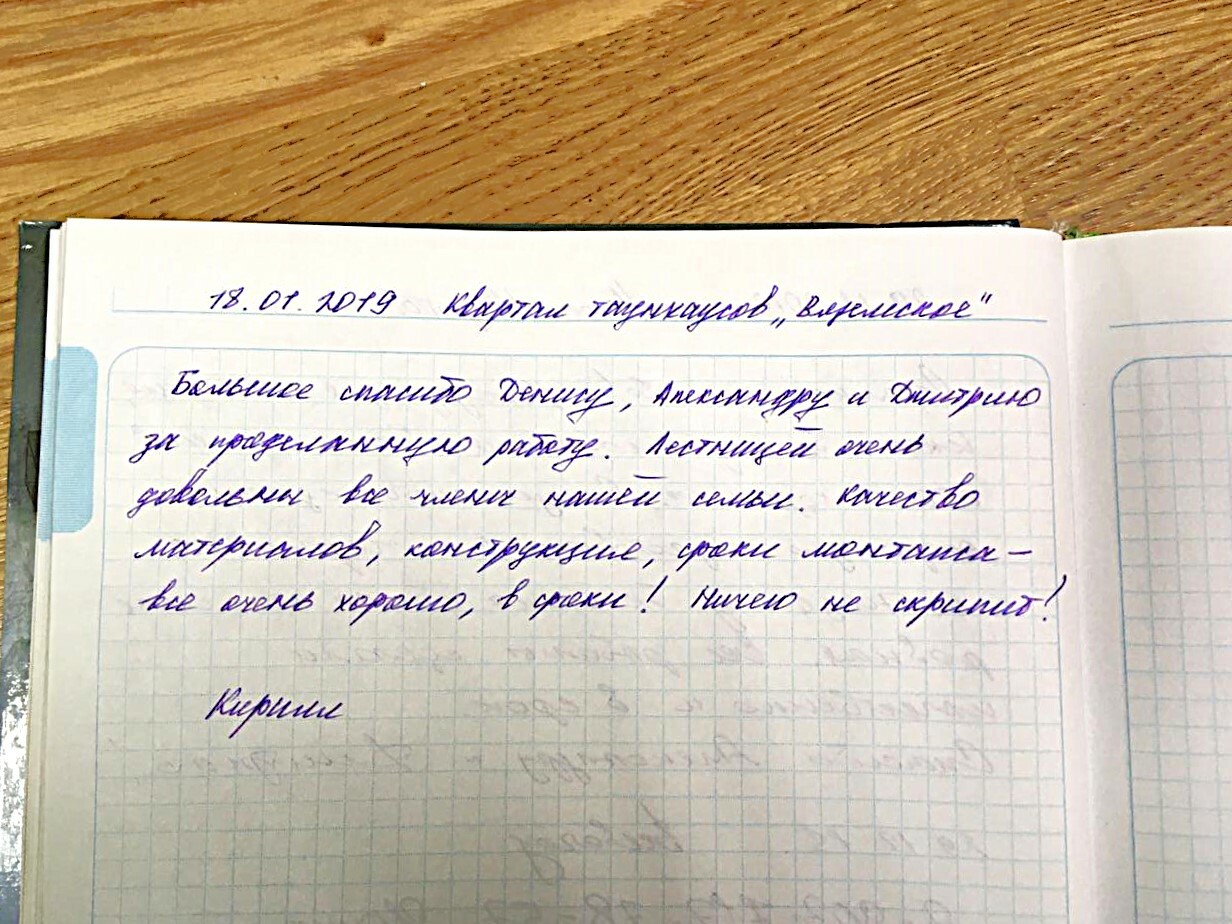 18.01.2019 Квартал таунхаусов „Вяземское"
Большое спасибо Денису, Александру и Дмитрию
за проделанную работу. Лестницей очень
довольны все члены нашей семьи. Качество
материалов, конструкция, сроки монтажа –
все очень хорошо, в сроки! Ничего не скрипит!
Кирилл